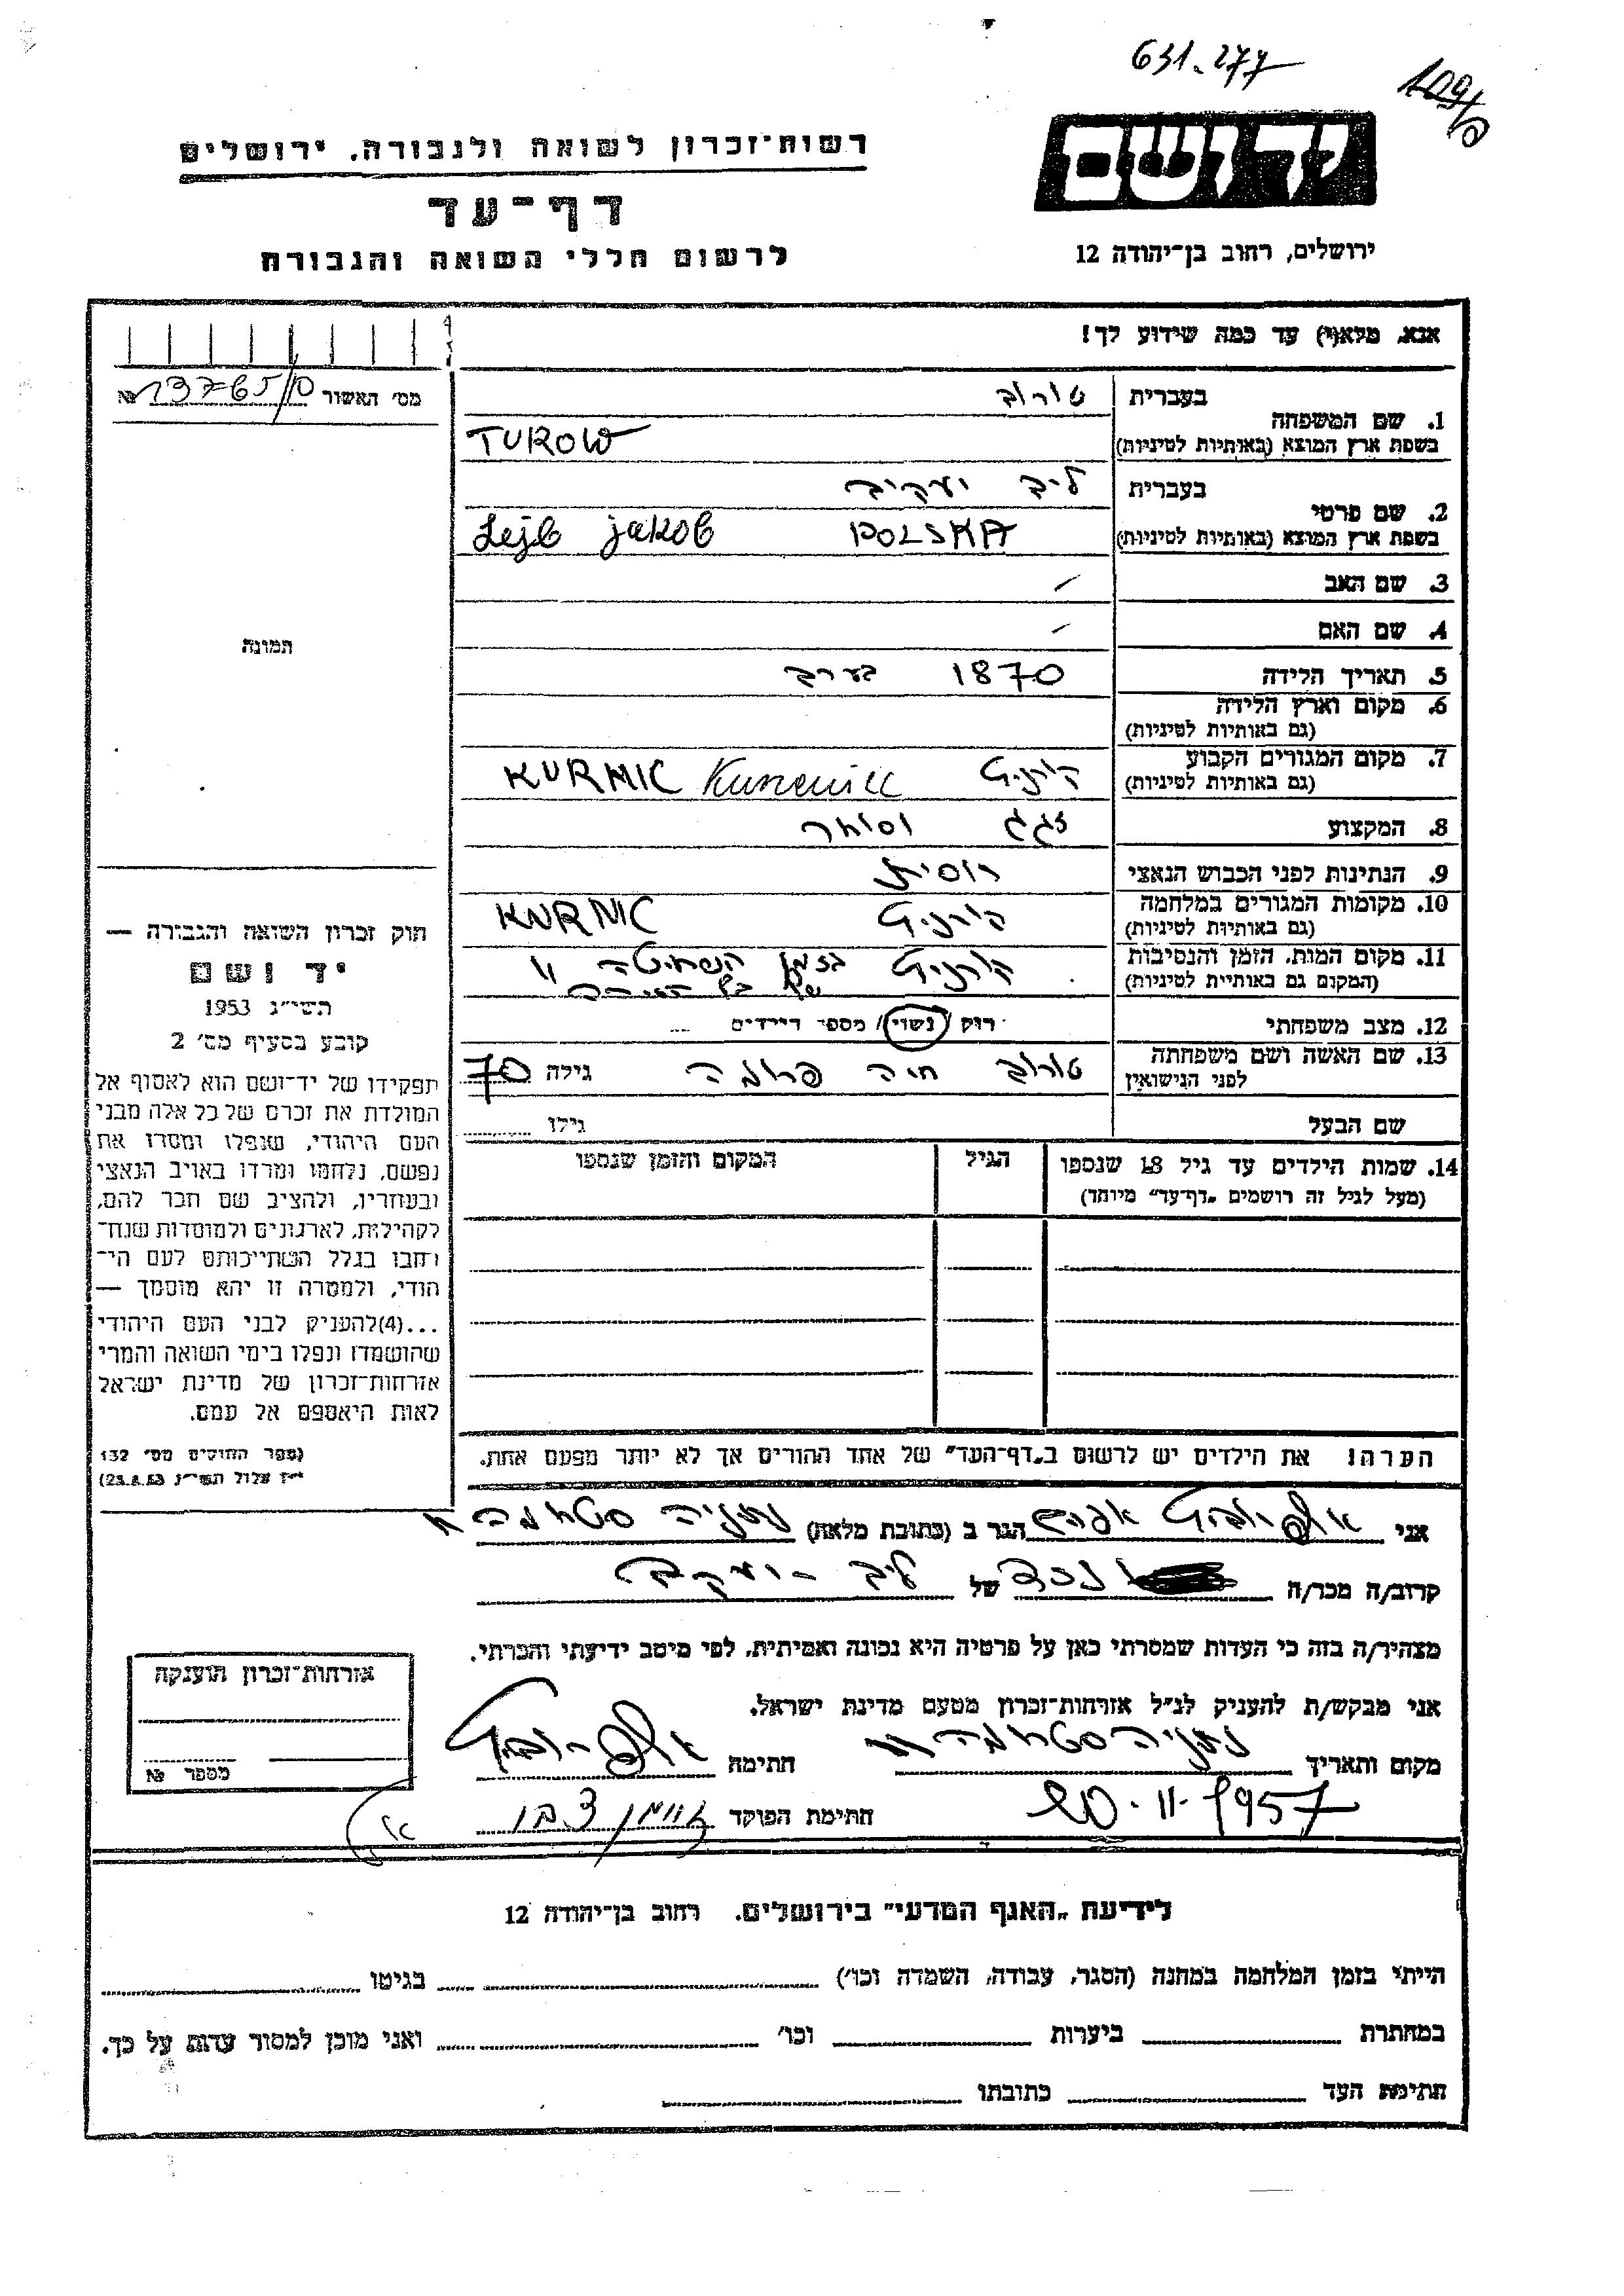 631.277
109/ס
יד ושם
ירושלים, רחוב בן־יהודה 12
רשות־זכרון לשואה ולגבורה. ירושלים
דף־עד
לרשום חללי השואה והגבורה
אנא, מלא(י) עד כמה שידוע לך!
מס׳ האשור № 13765/10
1. שם המשפחה
בעברית טורוב
בשפת ארץ המוצא (באותיות לטיניות) TUROW
2. שם פרטי
בעברית ליב יעקב
בשפת ארץ המוצא (באותיות לטיניות) Lejb jakob POLSKA
3. שם האב
4. שם האם
תמונה
5. תאריך הלידה 1870 בערך
6. מקום וארץ הלידה
(גם באותיות לטיניות)
7. מקום המגורים הקבוע
(גם באותיות לטיניות) קורניץ KURNIC
8. המקצוע זגג וסוחר
9. הנתינות לפני הכבוש הנאצי רוסית
10. מקומות המגורים במלחמה
(גם באותיות לטיניות) קורניץ KURNIC
11. מקום המות, הזמן והנסיבות
(המקום גם באותיית לטיניות) קורניץ בזמן השחיטה
של כל העירה
12. מצב משפחתי רוק / נשוי / מספר הילדים
13. שם האשה ושם משפחתה
לפני הנישואין טורוב חיה פרומה גילה 70
שם הבעל גילו
14. שמות הילדים עד גיל 18 שנספו הגיל המקום והזמן שנספו
(מעל לגיל זה רושמים „דף־עד״ מיוחד)
חוק זכרון השואה והגבורה —
יד ושם
תשי״ג 1953
קובע בסעיף מס׳ 2
תפקידו של יד־ושם הוא לאסוף אל
המולדת את זכרם של כל אלה מבני
העם היהודי, שנפלו ומסרו את
נפשם, נלחמו ומרדו באויב הנאצי
ובעוזריו, ולהציב שם וזכר להם,
לקהילות, לארגונים ולמוסדות שנח־
רחבו בגלל השתייכותם לעם הי־
הודי, ולמטרה זו יהא מוסמך —
...(4)להעניק לבני העם היהודי
שהושמדו ונפלו בימי השואה והמרי
אזרחות־זכרון של מדינת ישראל
לאות היאספם אל עמם.
(ספר החוקים מס׳ 132
י״ז אלול תשי״ג 28.8.53)
הערה! את הילדים יש לרשום ב„דף־העד״ של אחד ההורים אך לא יותר מפעם אחת.
אני אפרים הגר ב (כתובת מלאה) נתניה
קרוב/ה מכר/ה נכד של ליב-יעקב
מצהיר/ה בזה כי העדות שמסרתי כאן על פרטיה היא נכונה ואמיתית, לפי מיטב ידיעתי והכרתי.
אני מבקש/ת להעניק לנ״ל אזרחות־זכרון מטעם מדינת ישראל.
מקום ותאריך נתניה חתימה
20.11.1957 חתימת הפוקד
אזרחות־זכרון הוענקה
מספר №
לידיעת „האגף המדעי״ בירושלים. רחוב בן־יהודה 12
הייתי בזמן המלחמה במחנה (הסגר, עבודה, השמדה וכו׳) בגיטו
במחתרת ביערות וכו׳ ואני מוכן למסור עדות על כך.
חתימת העד כתובתו